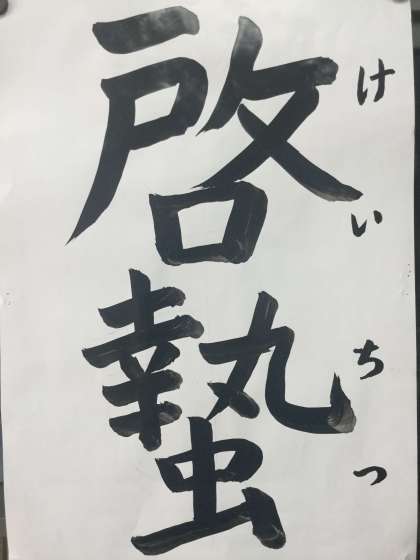 啓蟄
けいちつ